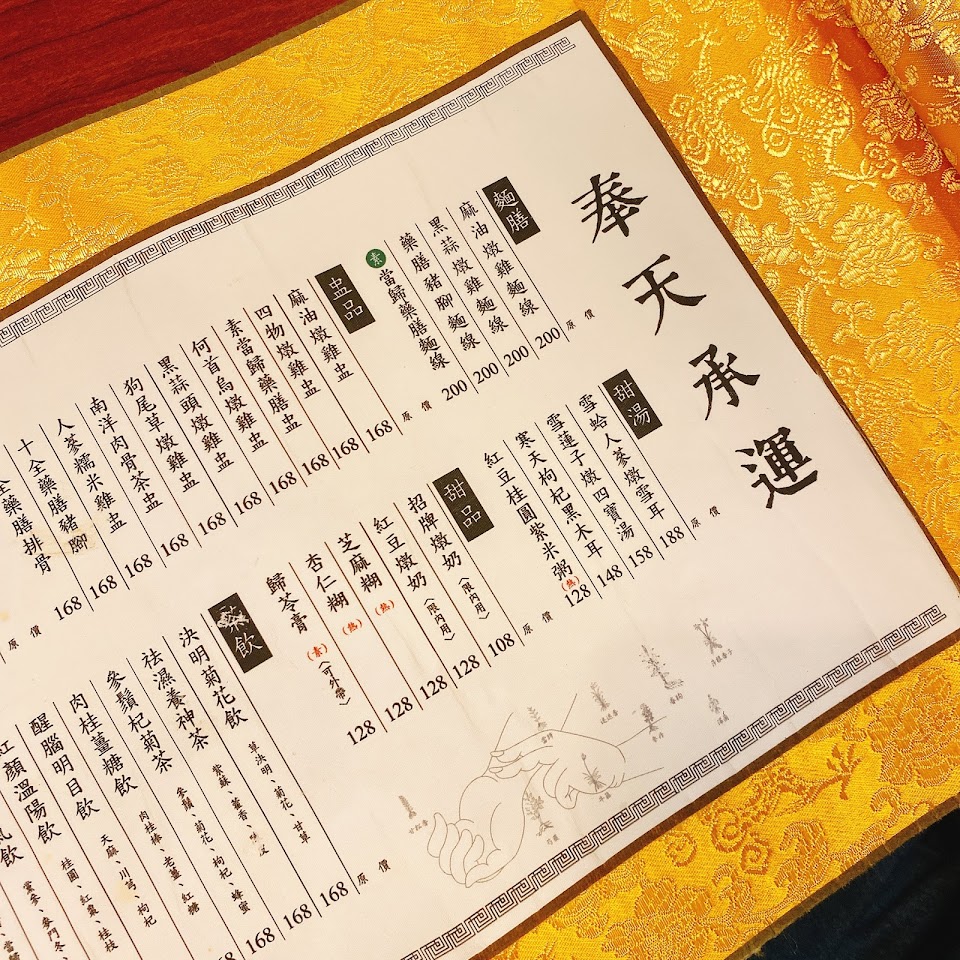 奉天承運
麵膳
原價
麻油燉雞麵線 200
黑蒜燉雞麵線 200
藥膳豬腳麵線 200
素 當歸藥膳麵線 200
盅品
原價
麻油燉雞盅 168
四物燉雞盅 168
素當歸藥膳盅 168
何首烏燉雞盅 168
黑蒜頭燉雞盅 168
狗尾草燉雞盅 168
南洋肉骨茶盅 168
人蔘糯米雞盅 168
十全藥膳豬腳 168
全藥膳排骨
原價
甜湯
原價
雪蛤人蔘燉雪耳 188
雪蓮子燉四寶湯 158
寒天枸杞黑木耳 148
紅豆桂圓紫米粥(熱) 128
甜品
原價
招牌燉奶〈限內用〉 108
紅豆燉奶〈限內用〉 128
芝麻糊(熱) 128
杏仁糊(熱) 128
歸苓膏(素)〈可外帶〉 128
茶飲
原價
決明菊花飲 草決明、菊花、甘草 168
祛濕養神茶 紫蘇、藿香、 168
參鬚杞菊茶 參鬚、菊花、枸杞、蜂蜜 168
肉桂薑糖飲 肉桂棒、老薑、紅糖 168
醒腦明目飲 天麻、川芎、枸杞
紅顏溫陽飲 桂圓、紅棗、桂枝
氣飲 黨參、麥門冬、